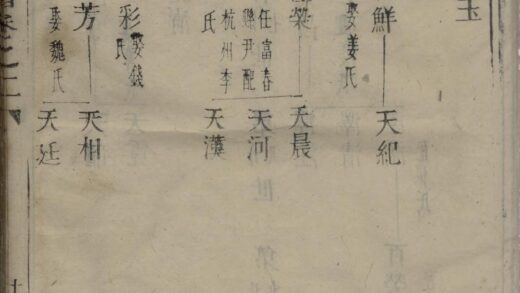 玉
鮮
娶姜氏
天紀
榮
任富春
縣尹配
杭州李
氏
天晨
天河
天漢
彩
娶錢
氏
芳
娶魏氏
天相
天廷
卷之三